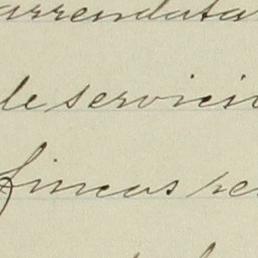 arrendata
de servicio
fincas re